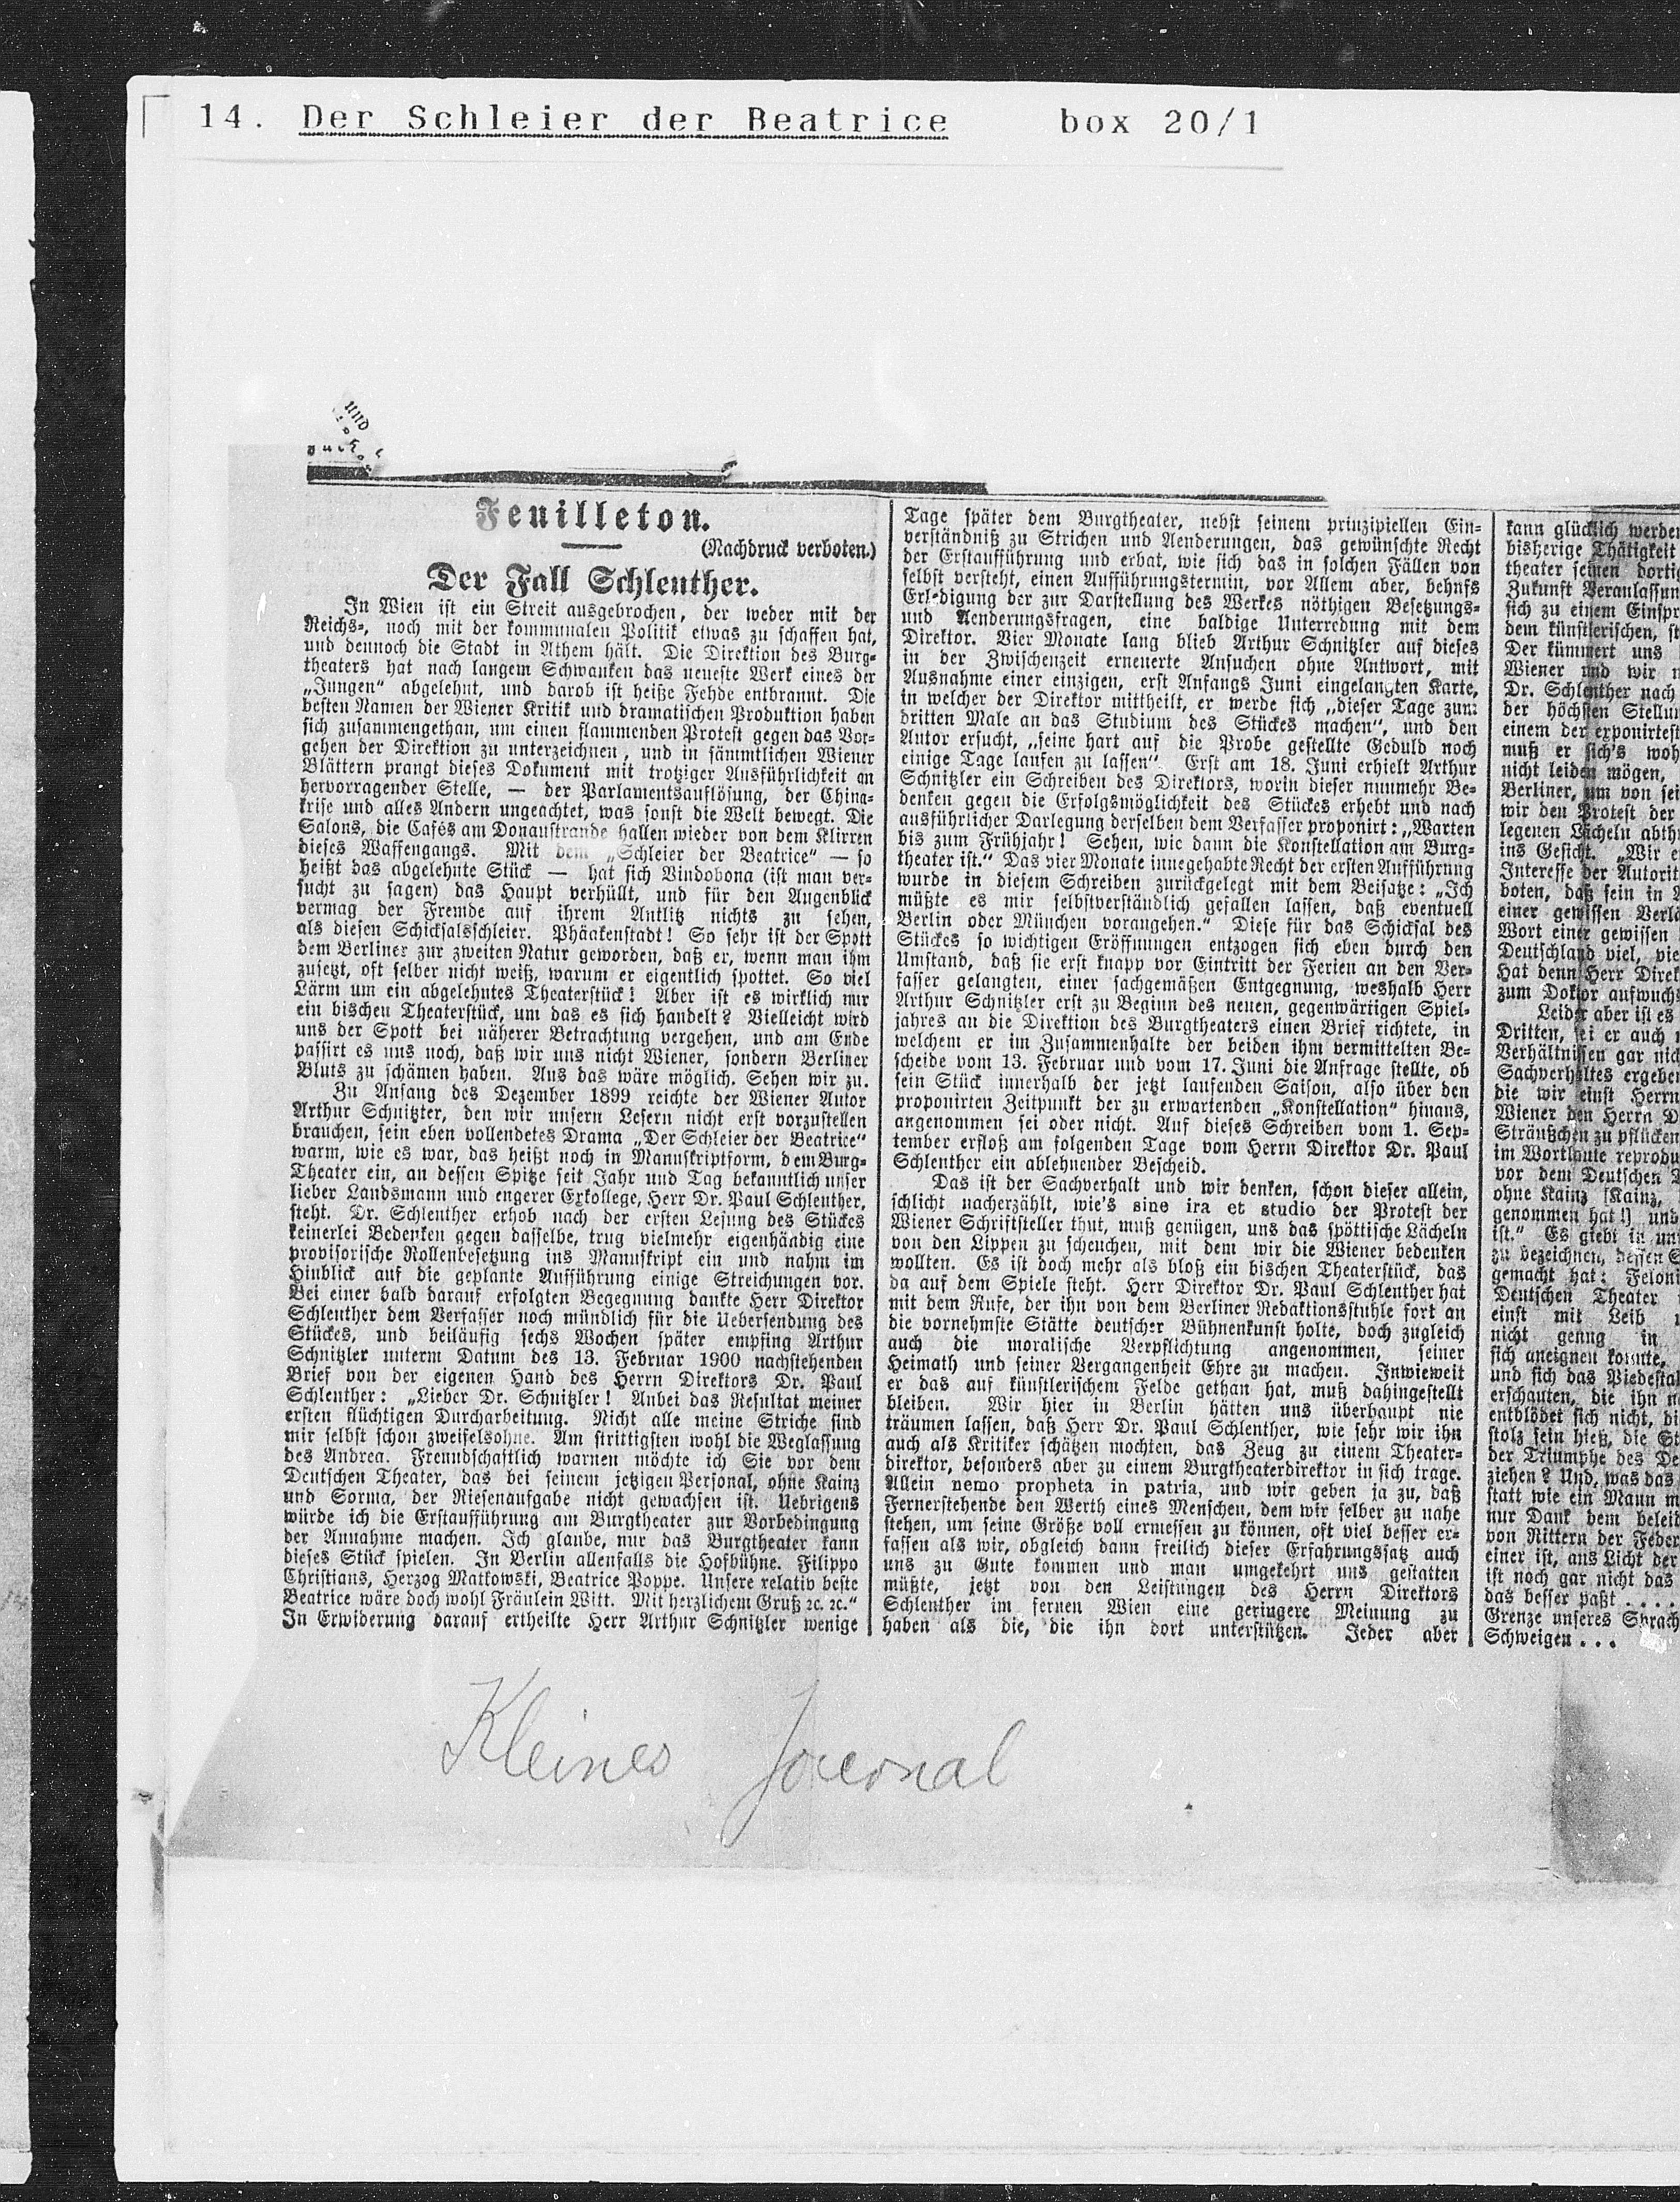 14. Der Schleier der Beatrice box 20/1
und
Feuilleton.
(Nachdruck verboten.)
Der Fall Schlenther.
In Wien ist ein Streit ausgebrochen, der weder mit der
Reichs-, noch mit der kommunalen Politik etwas zu schaffen hat,
und dennoch die Stadt in Athem hält. Die Direktion des Burg-
theaters hat nach langem Schwanken das neueste Werk eines der
„Jungen" abgelehnt, und darob ist heiße Fehde entbrannt. Die
besten Namen der Wiener Kritik und dramatischen Produktion haben
sich zusammengethan, um einen flammenden Protest gegen das Vor-
gehen der Direktion zu unterzeichnen, und in sämmtlichen Wiener
Blättern prangt dieses Dokument mit trotziger Ausführlichkeit an
hervorragender Stelle, — der Parlamentsauflösung, der China-
krise und alles Andern ungeachtet, was sonst die Welt bewegt. Die
Salons, die Cafés am Donaustrande hallen wieder von dem Klirren
dieses Waffengangs. Mit dem „Schleier der Beatrice" — so
heißt das abgelehnte Stück — hat sich Vindobona (ist man ver-
sucht zu sagen) das Haupt verhüllt, und für den Augenblick
vermag der Fremde auf ihrem Antlitz nichts zu sehen,
als diesen Schicksalsschleier. Phäakenstadt! So sehr ist der Spott
dem Berliner zur zweiten Natur geworden, daß er, wenn man ihm
zusetzt, oft selber nicht weiß, warum er eigentlich spottet. So viel
Lärm um ein abgelehntes Theaterstück! Aber ist es wirklich nur
ein bischen Theaterstück, um das es sich handelt? Vielleicht wird
uns der Spott bei näherer Betrachtung vergehen, und am Ende
passirt es uns noch, daß wir uns nicht Wiener, sondern Berliner
Bluts zu schämen haben. Aus das wäre möglich. Sehen wir zu.
Zu Anfang des Dezember 1899 reichte der Wiener Autor
Arthur Schnitzler, den wir unsern Lesern nicht erst vorzustellen
brauchen, sein eben vollendetes Drama „Der Schleier der Beatrice"
warm, wie es war, das heißt noch in Manuskriptform, dem Burg-
Theater ein, an dessen Spitze seit Jahr und Tag bekanntlich unser
lieber Landsmann und engerer Exkollege, Herr Dr. Paul Schlenther,
steht. Dr. Schlenther erhob nach der ersten Lesung des Stückes
keinerlei Bedenken gegen dasselbe, trug vielmehr eigenhändig eine
provisorische Rollenbesetzung ins Manuskript ein und nahm im
Hinblick auf die geplante Aufführung einige Streichungen vor.
Bei einer bald darauf erfolgten Begegnung dankte Herr Direktor
Schlenther dem Verfasser noch mündlich für die Uebersendung des
Stückes, und beiläufig sechs Wochen später empfing Arthur
Schnitzler unterm Datum des 13. Februar 1900 nachstehenden
Brief von der eigenen Hand des Herrn Direktors Dr. Paul
Schlenther: „Lieber Dr. Schnitzler! Anbei das Resultat meiner
ersten flüchtigen Durcharbeitung. Nicht alle meine Striche sind
mir selbst schon zweifelsohne. Am strittigsten wohl die Weglassung
des Andrea. Freundschaftlich warnen möchte ich Sie vor dem
Deutschen Theater, das bei seinem jetzigen Personal, ohne Kainz
und Sorma, der Riesenaufgabe nicht gewachsen ist. Uebrigens
würde ich die Erstaufführung am Burgtheater zur Vorbedingung
der Annahme machen. Ich glaube, nur das Burgtheater kann
dieses Stück spielen. In Berlin allenfalls die Hofbühne. Filippo
Christians, Herzog Matkowski, Beatrice Poppe. Unsere relativ beste
Beatrice wäre doch wohl Fräulein Witt. Mit herzlichem Gruß ꝛc. ꝛc."
In Erwiderung darauf ertheilte Herr Arthur Schnitzler wenige
Tage später dem Burgtheater, nebst seinem prinzipiellen Ein-
verständniß zu Strichen und Aenderungen, das gewünschte Recht
der Erstaufführung und erbat, wie sich das in solchen Fällen von
selbst versteht, einen Aufführungstermin, vor Allem aber, behufs
Erledigung der zur Darstellung des Werkes nöthigen Besetzungs-
und Aenderungsfragen, eine baldige Unterredung mit dem
Direktor. Vier Monate lang blieb Arthur Schnitzler auf dieses
in der Zwischenzeit erneuerte Ansuchen ohne Antwort, mit
Ausnahme einer einzigen, erst Anfangs Juni eingelangten Karte,
in welcher der Direktor mittheilt, er werde sich „dieser Tage zum
dritten Male an das Studium des Stückes machen", und den
Autor ersucht, „seine hart auf die Probe gestellte Geduld noch
einige Tage laufen zu lassen". Erst am 18. Juni erhielt Arthur
Schnitzler ein Schreiben des Direktors, worin dieser nunmehr Be-
denken gegen die Erfolgsmöglichkeit des Stückes erhebt und nach
ausführlicher Darlegung derselben dem Verfasser proponirt: „Warten
bis zum Frühjahr! Sehen, wie dann die Konstellation am Burg-
theater ist." Das vier Monate innegehabte Recht der ersten Aufführung
wurde in diesem Schreiben zurückgelegt mit dem Beisatze: „Ich
müßte es mir selbstverständlich gefallen lassen, daß eventuell
Berlin oder München vorangehen." Diese für das Schicksal des
Stückes so wichtigen Eröffnungen entzogen sich eben durch den
Umstand, daß sie erst knapp vor Eintritt der Ferien an den Ver-
fasser gelangten, einer sachgemäßen Entgegnung, weshalb Herr
Arthur Schnitzler erst zu Beginn des neuen, gegenwärtigen Spiel-
jahres an die Direktion des Burgtheaters einen Brief richtete, in
welchem er im Zusammenhalte der beiden ihm vermittelten Be-
scheide vom 13. Februar und vom 17. Juni die Anfrage stellte, ob
sein Stück innerhalb der jetzt laufenden Saison, also über den
proponirten Zeitpunkt der zu erwartenden „Konstellation" hinaus,
angenommen sei oder nicht. Auf dieses Schreiben vom 1. Sep-
tember erfloß am folgenden Tage vom Herrn Direktor Dr. Paul
Schlenther ein ablehnender Bescheid.
Das ist der Sachverhalt und wir denken, schon dieser allein,
schlicht nacherzählt, wie's sine ira et studio der Protest der
Wiener Schriftsteller thut, muß genügen, uns das spöttische Lächeln
von den Lippen zu scheuchen, mit dem wir die Wiener bedenken
wollten. Es ist doch mehr als bloß ein bischen Theaterstück, das
da auf dem Spiele steht. Herr Direktor Dr. Paul Schlenther hat
mit dem Rufe, der ihn von dem Berliner Redaktionsstuhle fort an
die vornehmste Stätte deutscher Bühnenkunst holte, doch zugleich
auch die moralische Verpflichtung angenommen, seiner
Heimath und seiner Vergangenheit Ehre zu machen. Inwieweit
er das auf künstlerischem Felde gethan hat, muß dahingestellt
bleiben. Wir hier in Berlin hätten uns überhaupt nie
träumen lassen, daß Herr Dr. Paul Schlenther, wie sehr wir ihn
auch als Kritiker schätzen mochten, das Zeug zu einem Theater-
direktor, besonders aber zu einem Burgtheaterdirektor in sich trage.
Allein nemo propheta in patria, und wir geben ja zu, daß
Fernerstehende den Werth eines Menschen, dem wir selber zu nahe
stehen, um seine Größe voll ermessen zu können, oft viel besser er-
fassen als wir, obgleich dann freilich dieser Erfahrungssatz auch
uns zu Gute kommen und man umgekehrt uns gestatten
müßte, jetzt von den Leistungen des Herrn Direktors
Schlenther im fernen Wien eine geringere Meinung zu
haben als die, die ihn dort unterstützen. Jeder aber
kann glücklich werden
bisherige Thätigkeit
theater seinen dorti
Zukunft Veranlassun
sich zu einem Einspr
dem künstlerischen, st
Der kümmert uns
Wiener und wir
Dr. Schlenther nach
der höchsten Stellu
einem der exponirtest
muß er sich's woh
nicht leiden mögen,
Berliner, um von sei
wir den Protest der
legenen Lächeln abth
ins Gesicht. „Wir e
Interesse der Autorit
boten, daß sein in
einer gewissen Verl
Wort einer gewissen
Deutschland viel, vie
Hat denn Herr Direk
zum Doktor aufwuchs
Leider aber ist es
Dritten, sei er auch
Verhältnissen gar nic
Sachverhaltes ergeben
die wir einst Herrn
Wiener den Herrn D
Sträußchen zu pflücken
im Wortlaute reprodu
vor dem Deutschen
ohne Kainz [Kainz,
genommen hat!) und
ist." Es giebt in un
zu bezeichnen, dessen
gemacht hat: Feloni
Deutschen Theater
einst mit Leib
nicht genug in
sich aneignen konnte,
und sich das Piedestal
erschauten, die ihn
entblödet sich nicht, di
stolz sein hieß, die St
der Triumphe des De
ziehen? Und, was das
statt wie ein Mann m
nur Dank dem beleid
von Rittern der Feder
einer ist, ans Licht der
ist noch gar nicht das
das besser paßt ....
Grenze unseres Sprach
Schweigen...
Kleines Journal